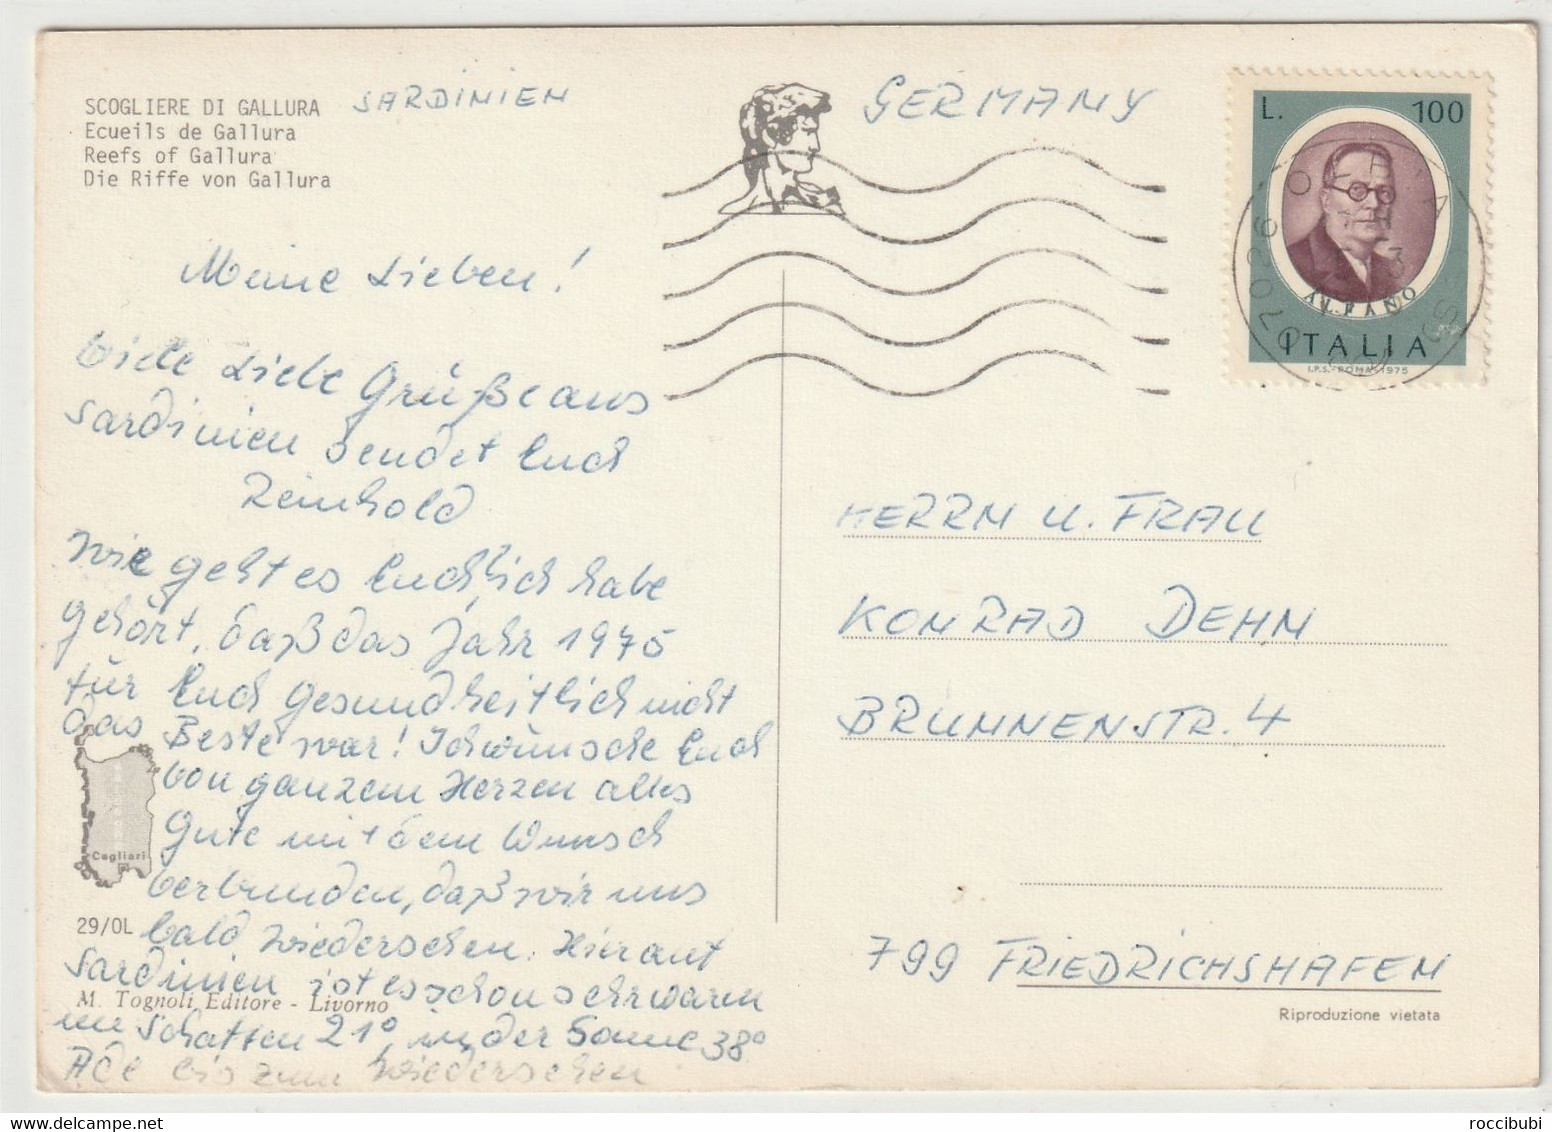 SCOGLIERE DI GALLURA
Ecueils de Gallura
Reefs of Gallura
Die Riffe von Gallura
SARDINIEN
GERMANY
L. 100
ALFANO
ITALIA
I.P.S.-ROMA-1975
07026 OLBIA
Meine Lieben!
Viele Liebe Grüße aus
Sardinien sendet Euch
Reinhold
Wie geht es Euch? Ich habe
gehört, daß das Jahr 1975
für Euch gesundheitlich nicht
das Beste war! Ich wünsche Euch
von ganzem Herzen alles
Gute mit dem Wunsch
verbunden, daß wir uns
bald wiedersehen. Hier auf
Sardinien ist es schon sehr warm
im Schatten 21°, in der Sonne 38°
Ade bis zum Wiedersehen
Cagliari
29/OL
M. Tognoli Editore - Livorno
HERRN U. FRAU
KONRAD DEHN
BRUNNENSTR. 4
799 FRIEDRICHSHAFEN
Riproduzione vietata
roccibubi